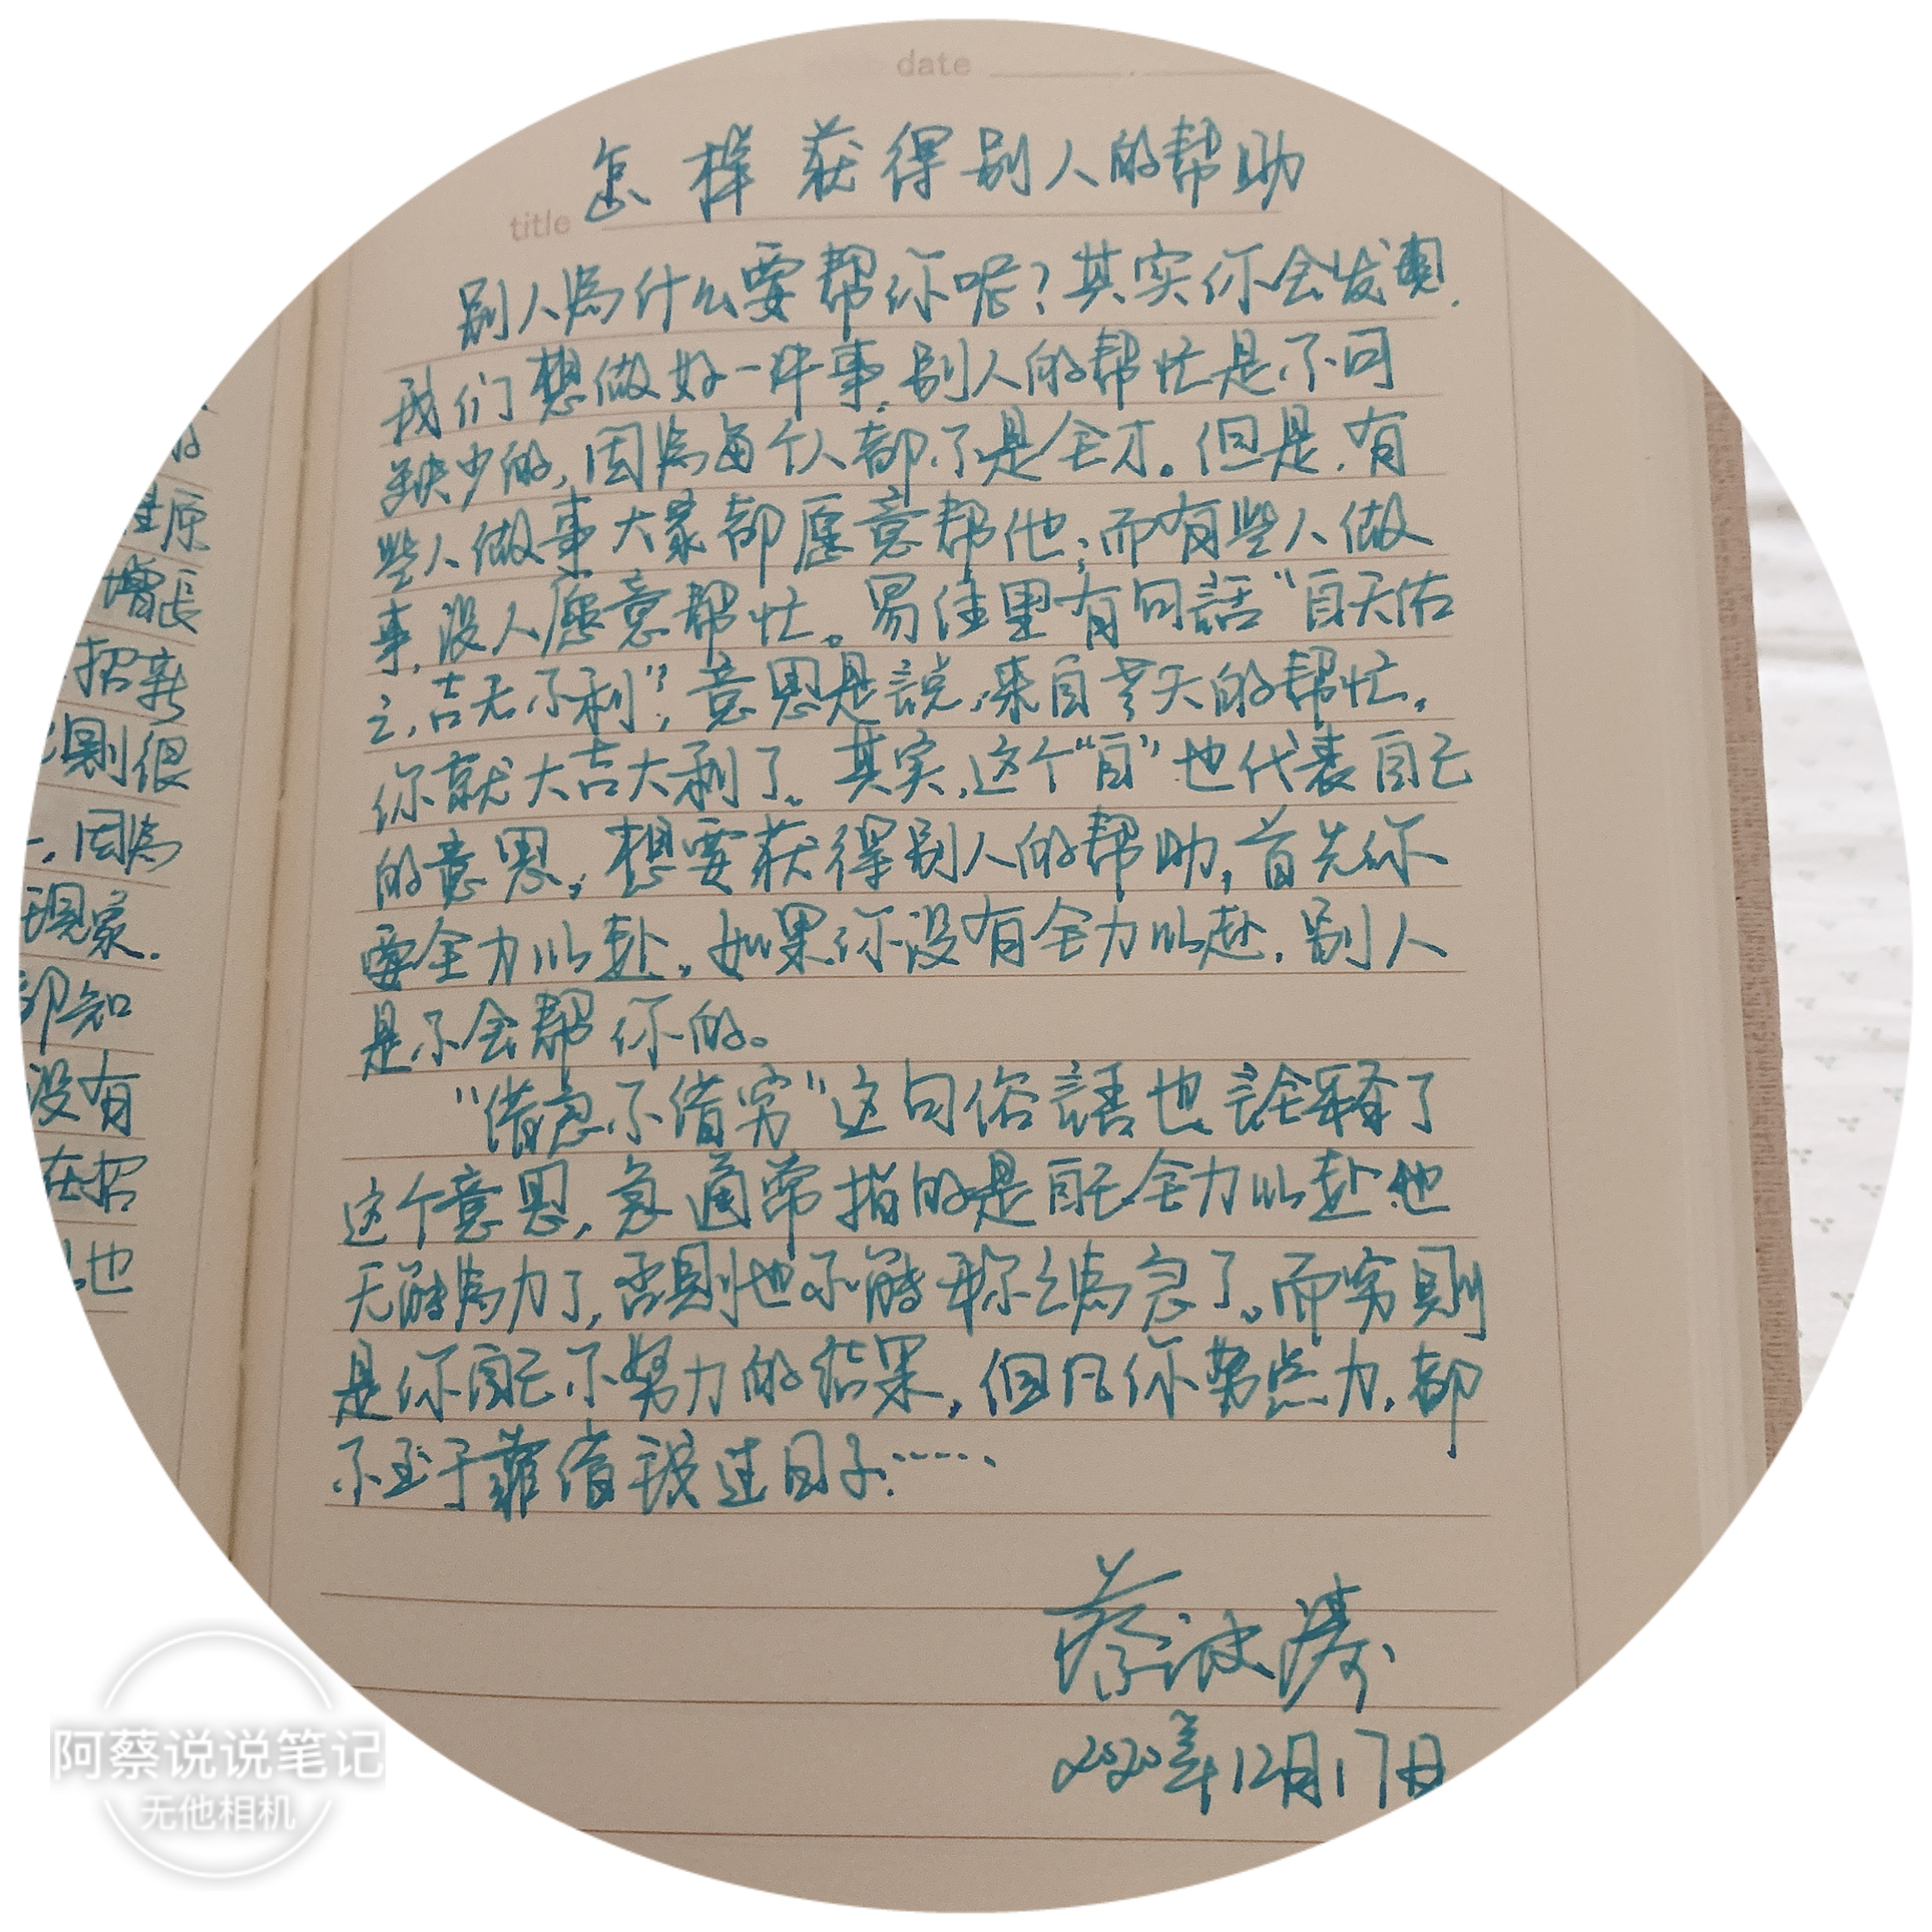 date
怎样获得别人的帮助
title
别人為什么要帮你呢?其实你会发现,
我们想做好一件事,别人的帮忙是不可
缺少的,因為每个人都不是全才。但是,有
些人做事大家都愿意帮他;而有些人做
事,没人愿意帮忙。易经里有句話“自天佑
之,吉无不利”,意思是説,来自老天的帮忙,
你就大吉大利了。其实,这个“自”也代表自己
的意思,想要获得别人的帮助,首先你
要全力以赴,如果你没有全力以赴,别人
是不会帮你的。
“借急不借穷”这句俗語也詮释了
这个意思,急通常指的是自己全力以赴也
无能為力了,否則也不能称之為急了。而穷則
是你自己不努力的结果,但凡你努点力,都
不至于靠借錢过日子……
2020年12月17日
原
增长
招新
則很
,因為
现象.
即知
没有
在招
也
阿蔡说说笔记
无他相机